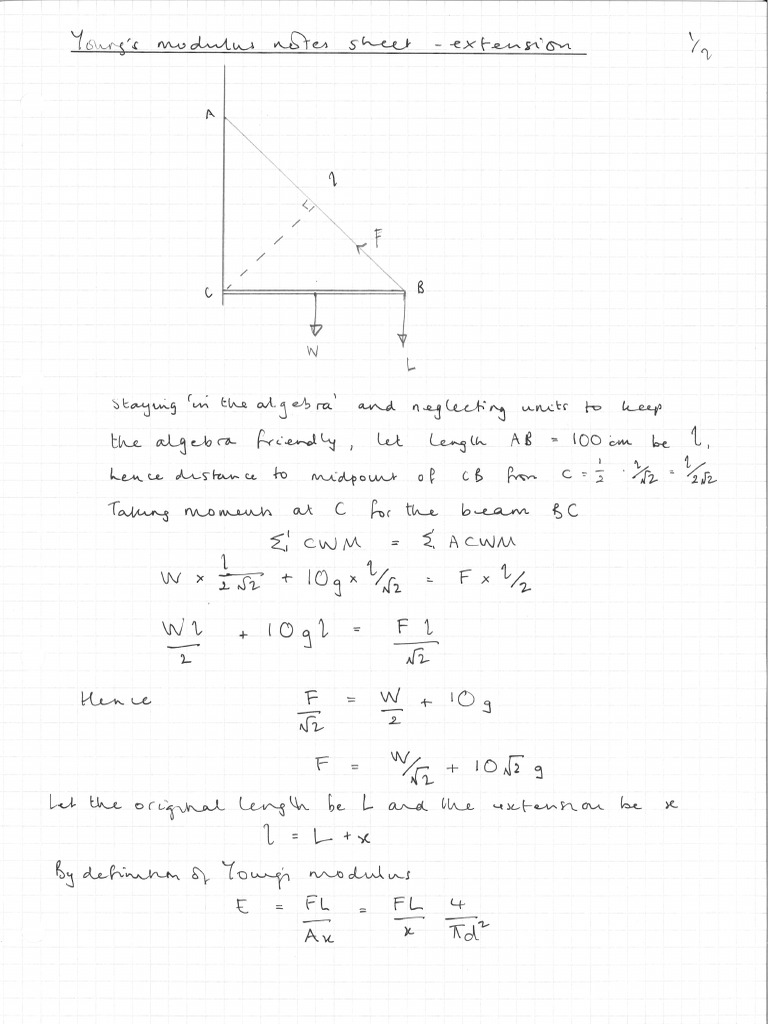 Young's modulus notes sheet - extension 1/2
A
l
F
C
B
W
L
Staying 'in the algebra' and neglecting units to keep
the algebra friendly, let length AB = 100 cm be l,
hence distance to midpoint of CB from C = 1/2 · l/√2 = l/2√2
Taking moments at C for the beam BC
Σ CWM = Σ ACWM
W × l/2√2 + 10g × l/√2 = F × l/2
Wl/2 + 10gl = Fl/√2
Hence F/√2 = W/2 + 10g
F = W/√2 + 10√2 g
Let the original length be L and the extension be x
l = L + x
By definition of Young's modulus
E = FL/Ax = FL/x 4/πd²